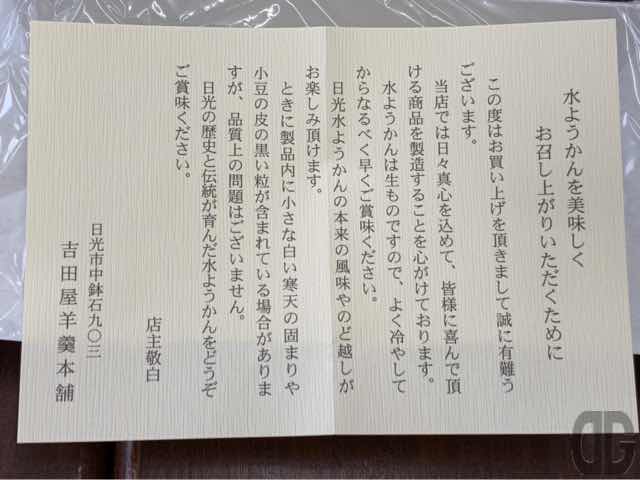 水ようかんを美味しく
お召し上がりいただくために
この度はお買い上げを頂きまして誠に有難う
ございます。
当店では日々真心を込めて、皆様に喜んで頂
ける商品を製造することを心がけております。
水ようかんは生ものですので、よく冷やして
からなるべく早くご賞味ください。
日光水ようかんの本来の風味やのど越しが
お楽しみ頂けます。
ときに製品内に小さな白い寒天の固まりや
小豆の皮の黒い粒が含まれている場合がありま
すが、品質上の問題はございません。
日光の歴史と伝統が育んだ水ようかんをどうぞ
ご賞味ください。
店主敬白
日光市中鉢石九〇三
吉田屋羊羹本舗